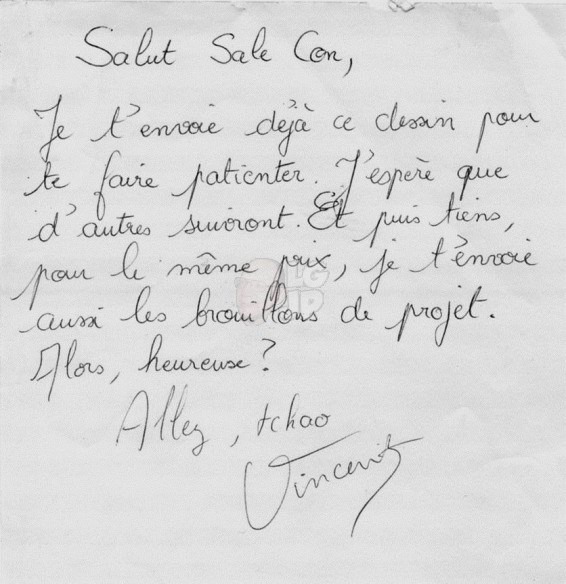 Salut Sale Con,
Je t'envoie déjà ce dessin pour
te faire patienter. J'espère que
d'autres suivront. Et puis tiens,
pour le même prix, je t'envoie
aussi les brouillons de projet.
Alors, heureuse ?
Allez, tchao
Vincent